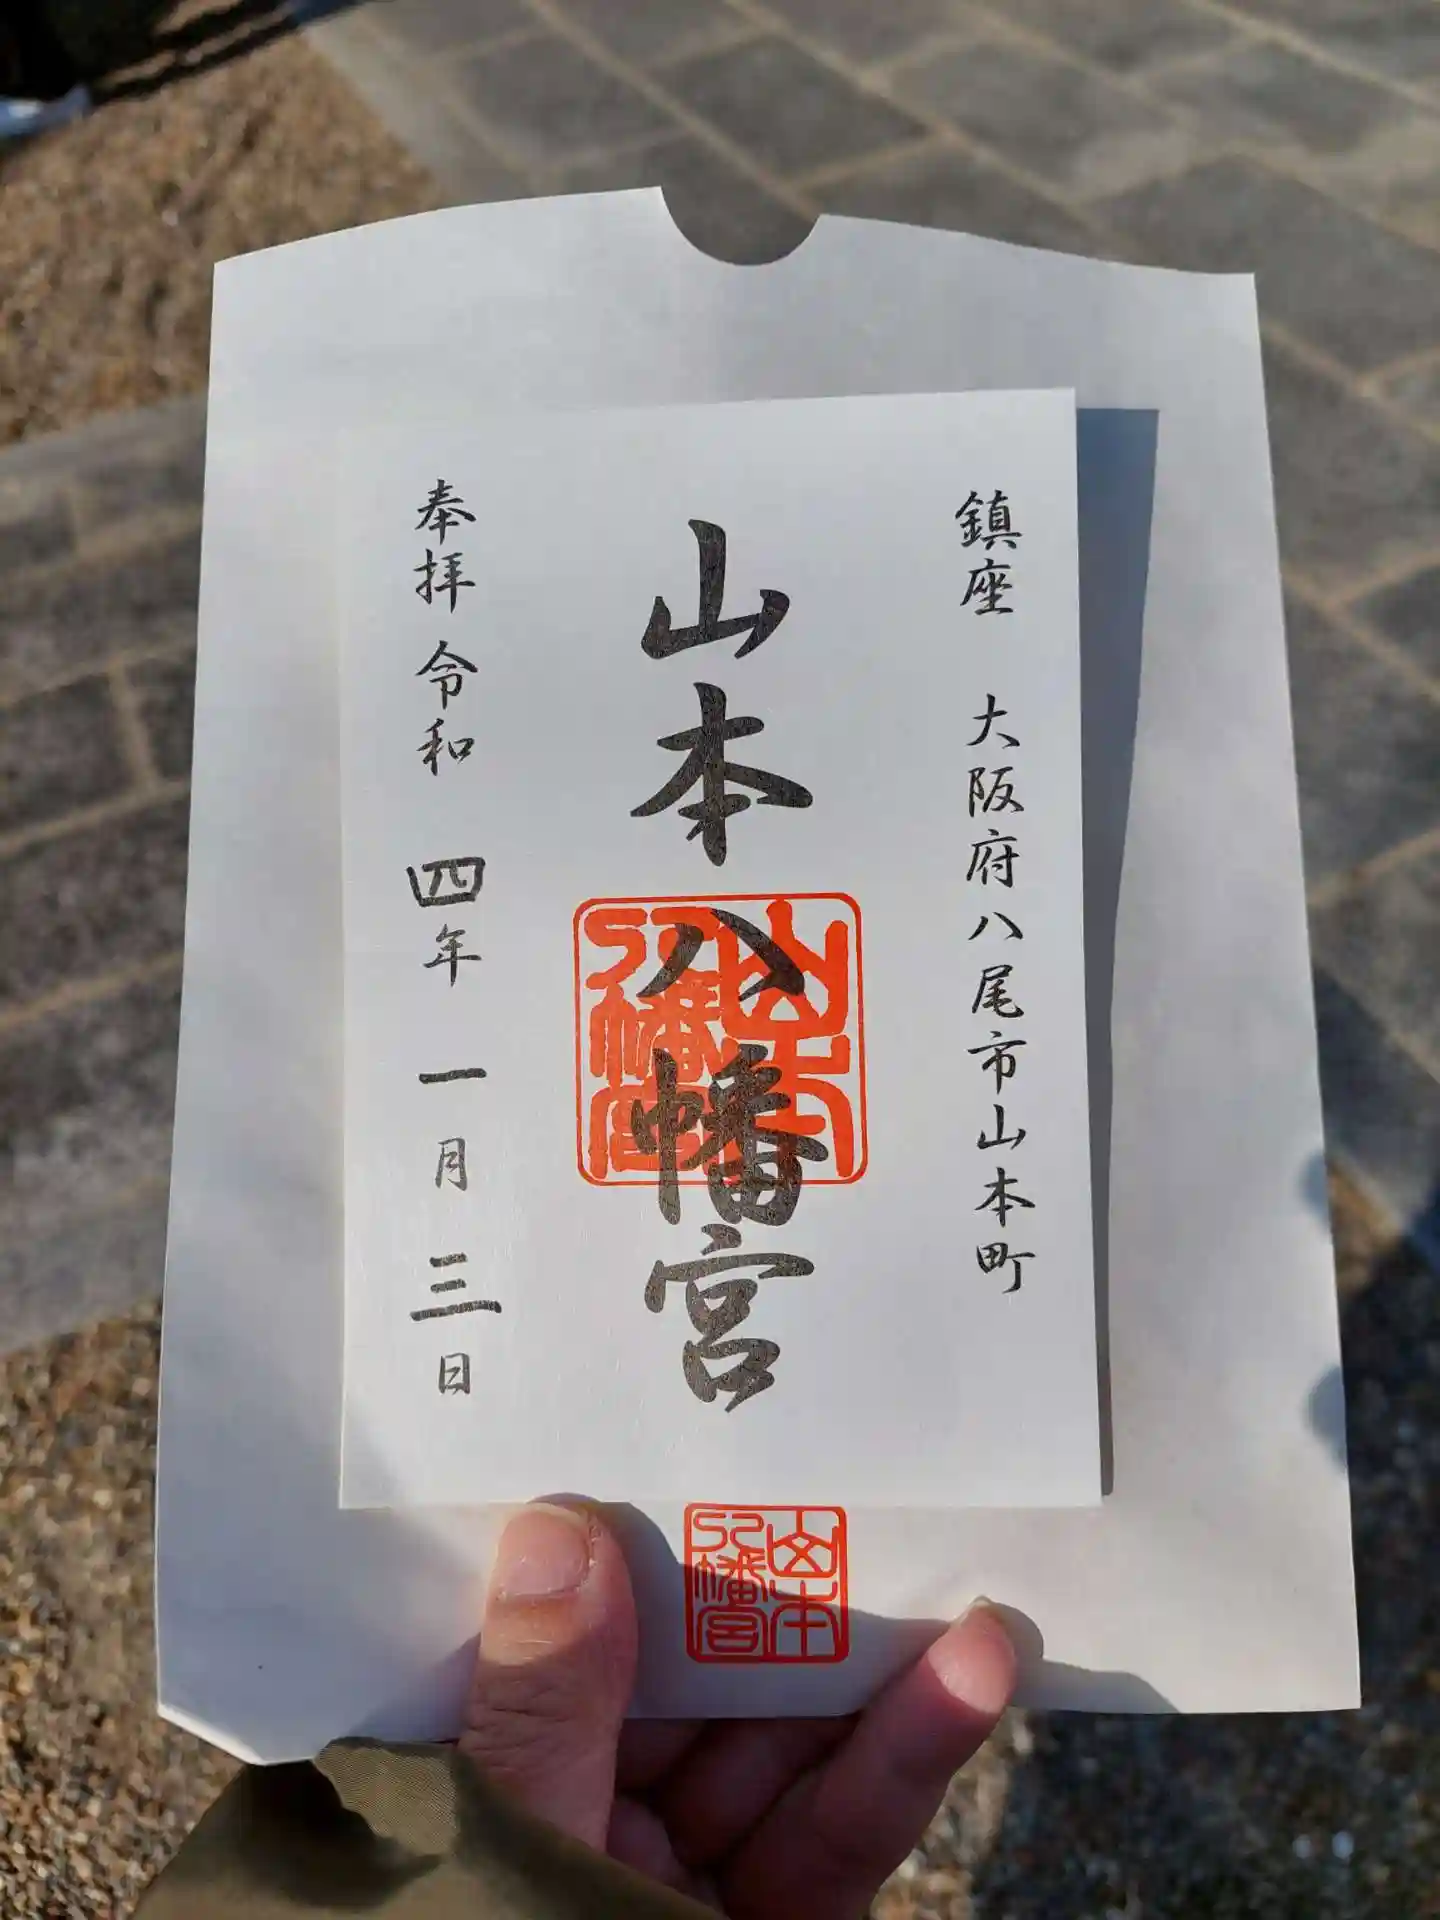 鎮座 大阪府八尾市山本町
山本八幡宮
山本
八幡宮
奉拝 令和 四年 一月 三日
山本
八幡宮